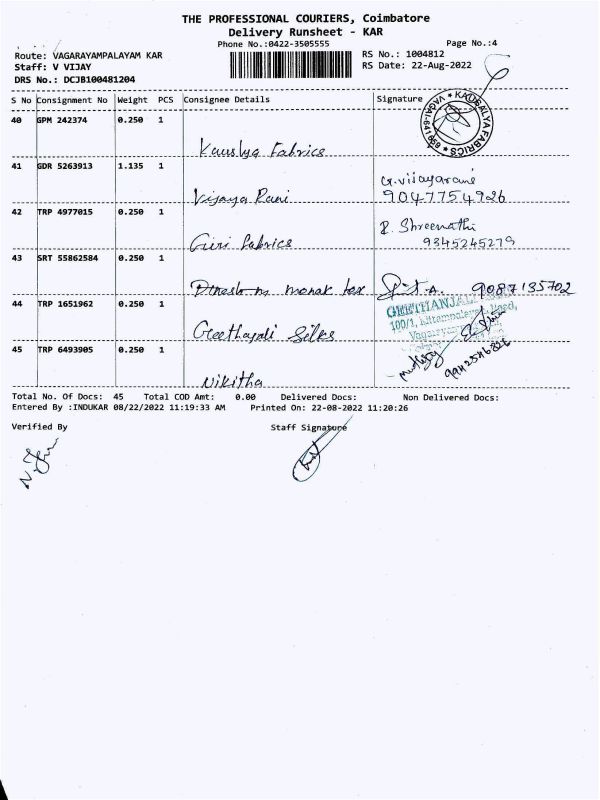 THE PROFESSIONAL COURIERS, Coimbatore
Delivery Runsheet - KAR
Phone No.:0422-3505555 Page No.:4
Route: VAGARAYAMPALAYAM KAR RS No.: 1004812
Staff: V VIJAY RS Date: 22-Aug-2022
DRS No.: DCJB100481204
S No Consignment No Weight PCS Consignee Details Signature
KAUSALYA FABRICS * VAGAI-641 659 *
40 GPM 242374 0.250 1
Kauslya Fabrics
41 GDR 5263913 1.135 1 G.vijayarani
Vijaya Rani 9047754926
42 TRP 4977015 0.250 1 R. Shreenathi
Giri Fabrics 9345245279
43 SRT 55862584 0.250 1
Dinesh monak tex 9087135702
44 TRP 1651962 0.250 1 GEETHANJALI
100/1, Road,
Geethajali Silks
45 TRP 6493905 0.250 1
Nikitha
Total No. Of Docs: 45 Total COD Amt: 0.00 Delivered Docs: Non Delivered Docs:
Entered By :INDUKAR 08/22/2022 11:19:33 AM Printed On: 22-08-2022 11:20:26
Verified By Staff Signature